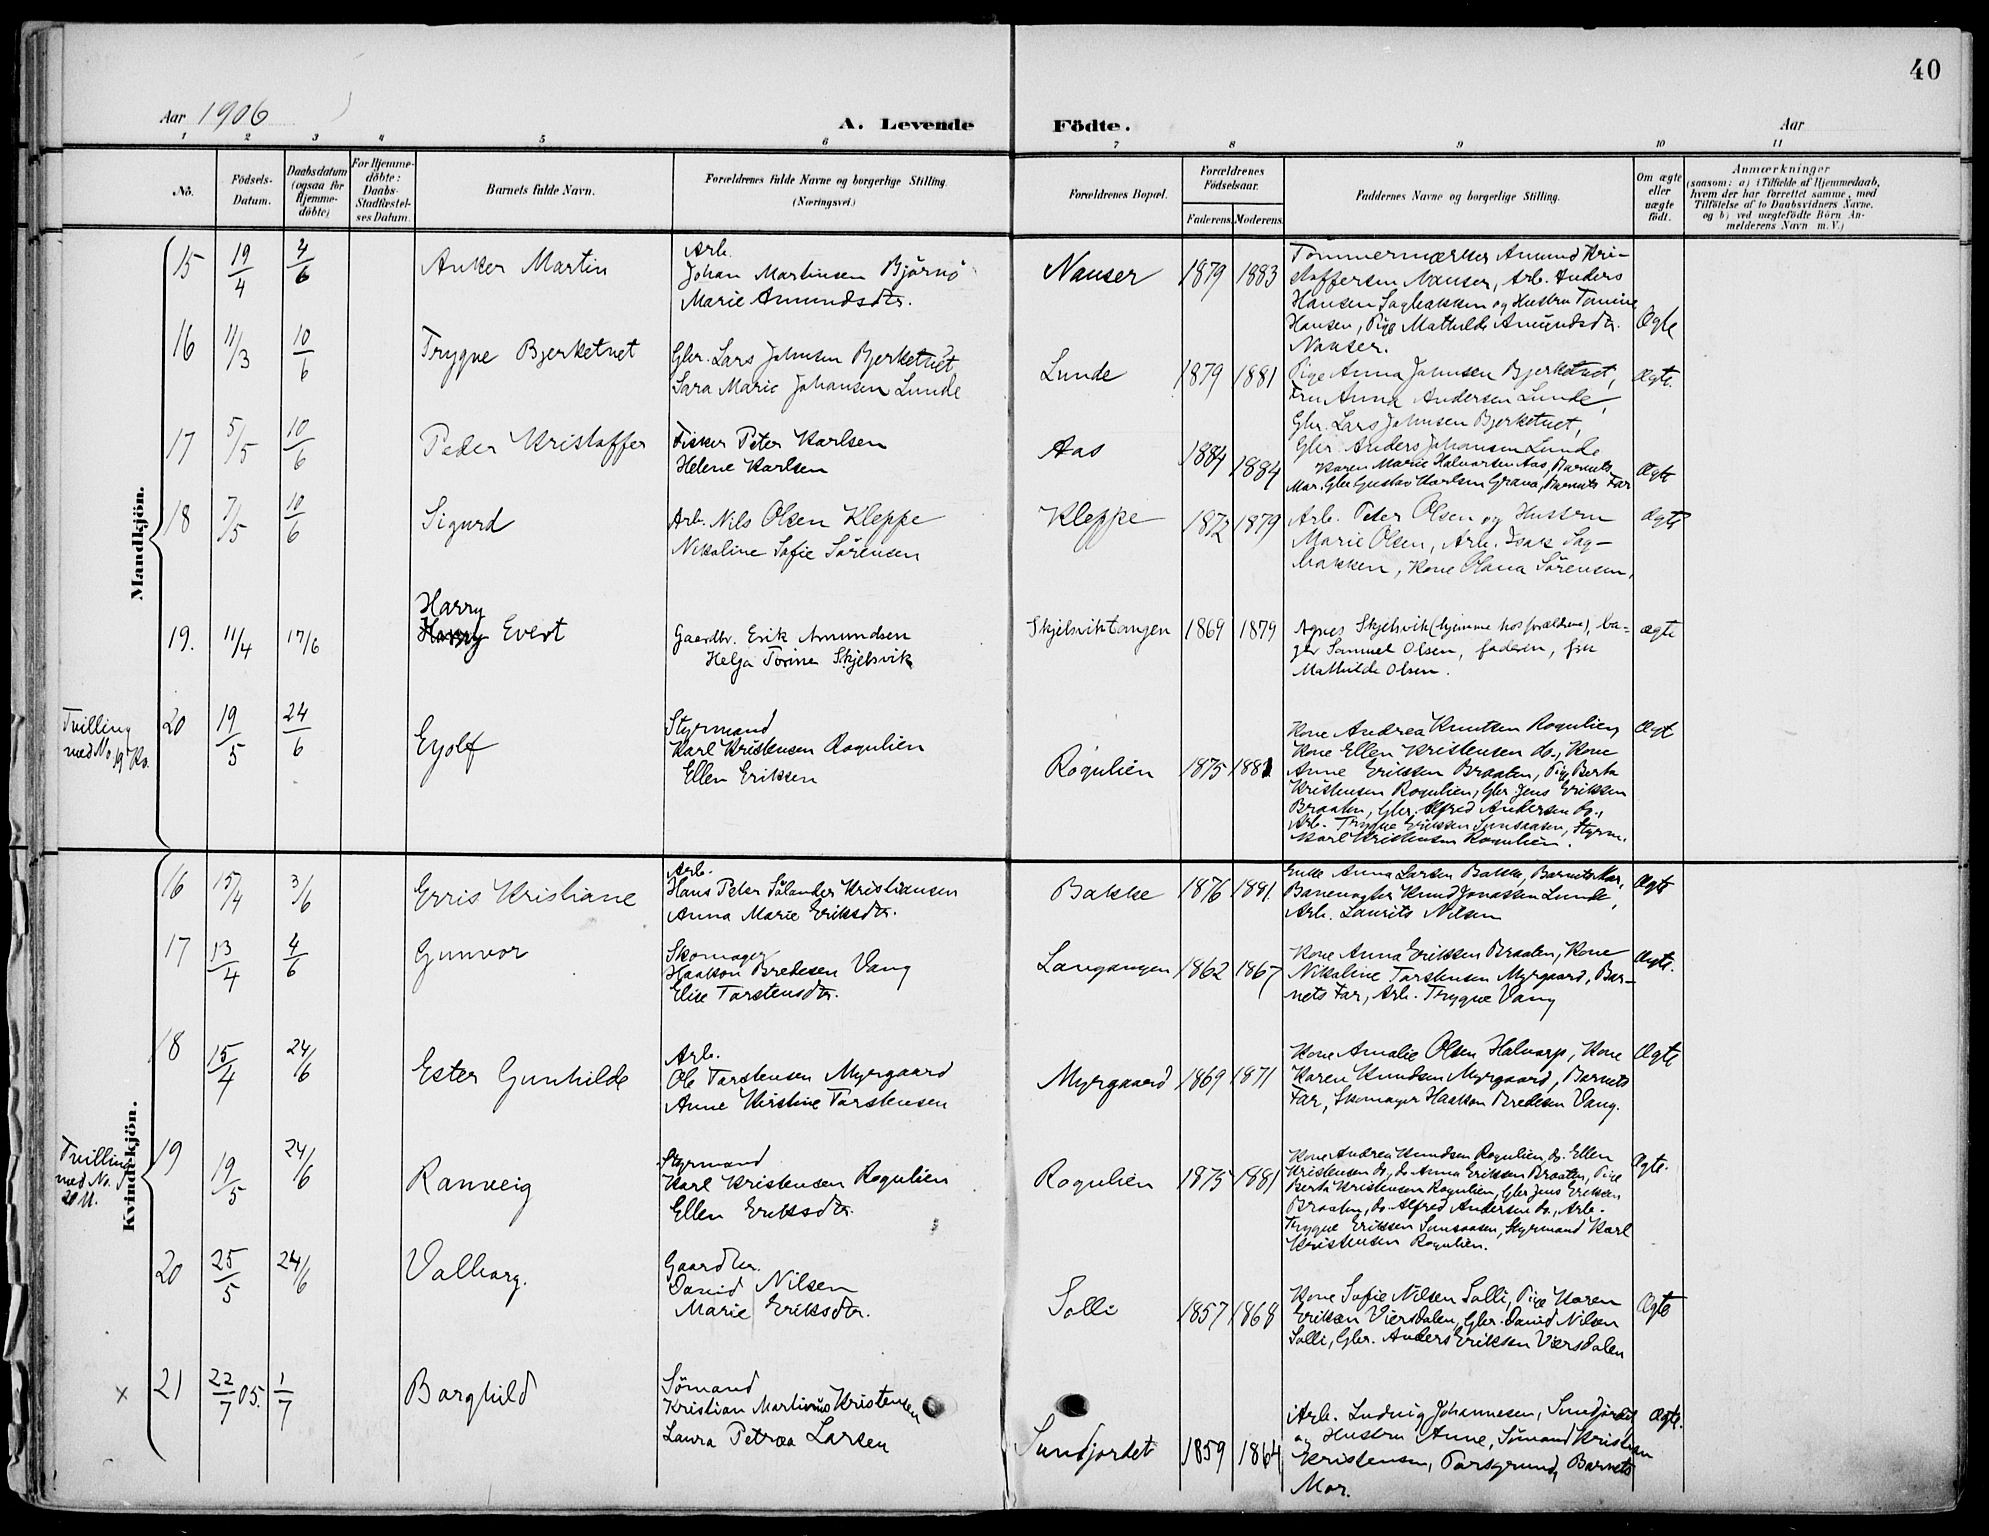 40
Aar 1906
A. Levende Födte.
Aar
1 2 3 4 5 6 7 8 9 10 11
No.
Födsels-
Datum.
Daabsdatum
(ogsaa for
Hjemme-
döbte)
For Hjemme-
döbte:
Daabs-
Stadfæstel-
ses Datum.
Barnets fulde Navn.
Forældrenes fulde Navne og borgerlige Stilling.
(Næringsvei.)
Forældrenes Bopæl.
Forældrenes
Födselsaar.
Faderens. Moderens.
Faddernes Navne og borgerlige Stilling.
Om ægte
eller
uægte
födt.
Anmærkninger
(saasom: a) i Tilfælde af Hjemmedaab,
hvem der har forrettet samme, med
Tilföielse af to Daabsvidners Navne,
og b) ved uægtefödte Börn An-
melderens Navn m. V.)
Mandkjön.
15 19/4 4/6 Anker Martin
Arb.
Johan Martinsen Bjørnø
Marie Amundsdtr.
Nauser 1879 1883
Tømmermærker Amund Kri-
stoffersen Nauser, Arb. Anders
Hansen Sagbakken og Hustru Tomine
Hansen, Pige Mathilde Amundsdtr.
Nauser.
Ægte
16 11/3 10/6 Trygve Bjerketvet
Gbr. Lars Johnsen Bjerketvet
Sara Marie Johansen Lunde
Lunde 1879 1881
Pige Anna Johnsen Bjerketvet,
Fru Anna Andersen Lunde,
Gbr. Lars Johnsen Bjerketvet,
Gbr. Anders Johansen Lunde
Ægte.
17 5/5 10/6 Peder Kristoffer
Fisker Peter Karlsen
Helene Karlsen
Aas 1884 1884
Karen Marie Halvorsen Aas, Barnets
Mor, Gbr Gustav Karlsen Grava, Barnets Far
Ægte
18 7/5 10/6 Sigurd
Arb. Nils Olsen Kleppe
Nikoline Sofie Sørensen
Kleppe 1872 1879
Arb. Peter Olsen og Hustru
Marie Olsen, Arb. Isak Sag-
bakken, Kone Olava Sørensen,
Ægte
19. 11/4 17/6
Harry
Harry Evert
Gaardbr. Erik Amundsen
Helga Torine Skjelsvik
Skjelsviktangen 1869 1879
Agnes Skjelsvik (hjemme hos forældrene), ba-
ger Samuel Olsen, faderen, fru
Mathilde Olsen.
ægte
Tvilling
med No 19 Kv.
20 19/5 24/6 Eyolf
Styrmand
Karl Kristensen Rognlien
Ellen Eriksen
Rognlien 1875 1881
Kone Andrea Knutsen Rognlien,
Kone Ellen Kristensen do., Kone
Anne Eriksen Braaten, Pige Berta
Kristensen Rognlien, Gbr. Jens Eriksen
Braaten, Gbr. Alfred Andersen do.,
Arb. Trygve Eriksen Sunsaasen, Styrm.
Karl Kristensen Rognlien.
Ægt
Kvindekjön.
16 15/4 3/6 Erris Kristiane
Arb.
Hans Peter Sålander Kristiansen
Anna Marie Eriksdtr.
Bakke 1876 1881.
Enke Anna Larsen Bakke, Barnets Mor,
Banevogter Knud Jonassen Lunde,
Arb. Laurits Nilsen
Ægte
17 13/4 4/6 Gunvor
Skomager
Haakon Bredesen Vang
Elise Torstensdtr.
Langangen 1862 1867
Kone Anna Eriksen Braaten, Kone
Nikoline Torstensen Myrgaard, Bar-
nets Far, Arb. Trygve Vang
Ægte.
18 15/4 24/6 Ester Gunhilde
Arb.
Ole Torstensen Myrgaard
Anne Kirstine Torstensen
Myrgaard 1869 1871
Kone Amalie Olsen Halvarp, Kone
Karen Knudsen Myrgaard, Barnets
Far, Skomager Haakon Bredesen Vang.
Ægte
Tvilling
med No.
20 M.
19 19/5 24/6 Ranveig
Styrmand
Karl Kristensen Rognlien
Ellen Eriksdtr.
Rognlien 1875 1881
Kone Andrea Knudsen Rognlien, do. Ellen
Kristensen do, do Anna Eriksen Braaten, Pige
Berta Kristensen Rognlien, Gbr Jens Eriksen
Braaten, do. Alfred Andersen do., Arb.
Trygve Eriksen Sunsaasen, Styrmand Karl
Kristensen Rognlien.
Ægte.
20 25/5 24/6 Valborg.
Gaardbr.
David Nilsen
Marie Eriksdtr.
Solli 1857 1868
Kone Sofie Nilsen Solli, Pige Karen
Eriksen Viersdalen, Gbr. David Nilsen
Solli, Gbr. Anders Eriksen Viersdalen
Ægte
x 21 22/7 05. 1/7 Borghild
Sømand
Kristian Martinius Kristensen
Laura Petrea Larsen
Sundjordet 1859 1864
Arb. Ludvig Johannesen, Sundjordet
og Hustru Anne, Sømand Kristian
Kristensen, Porsgrund, Barnets
Mor.
Ægte.